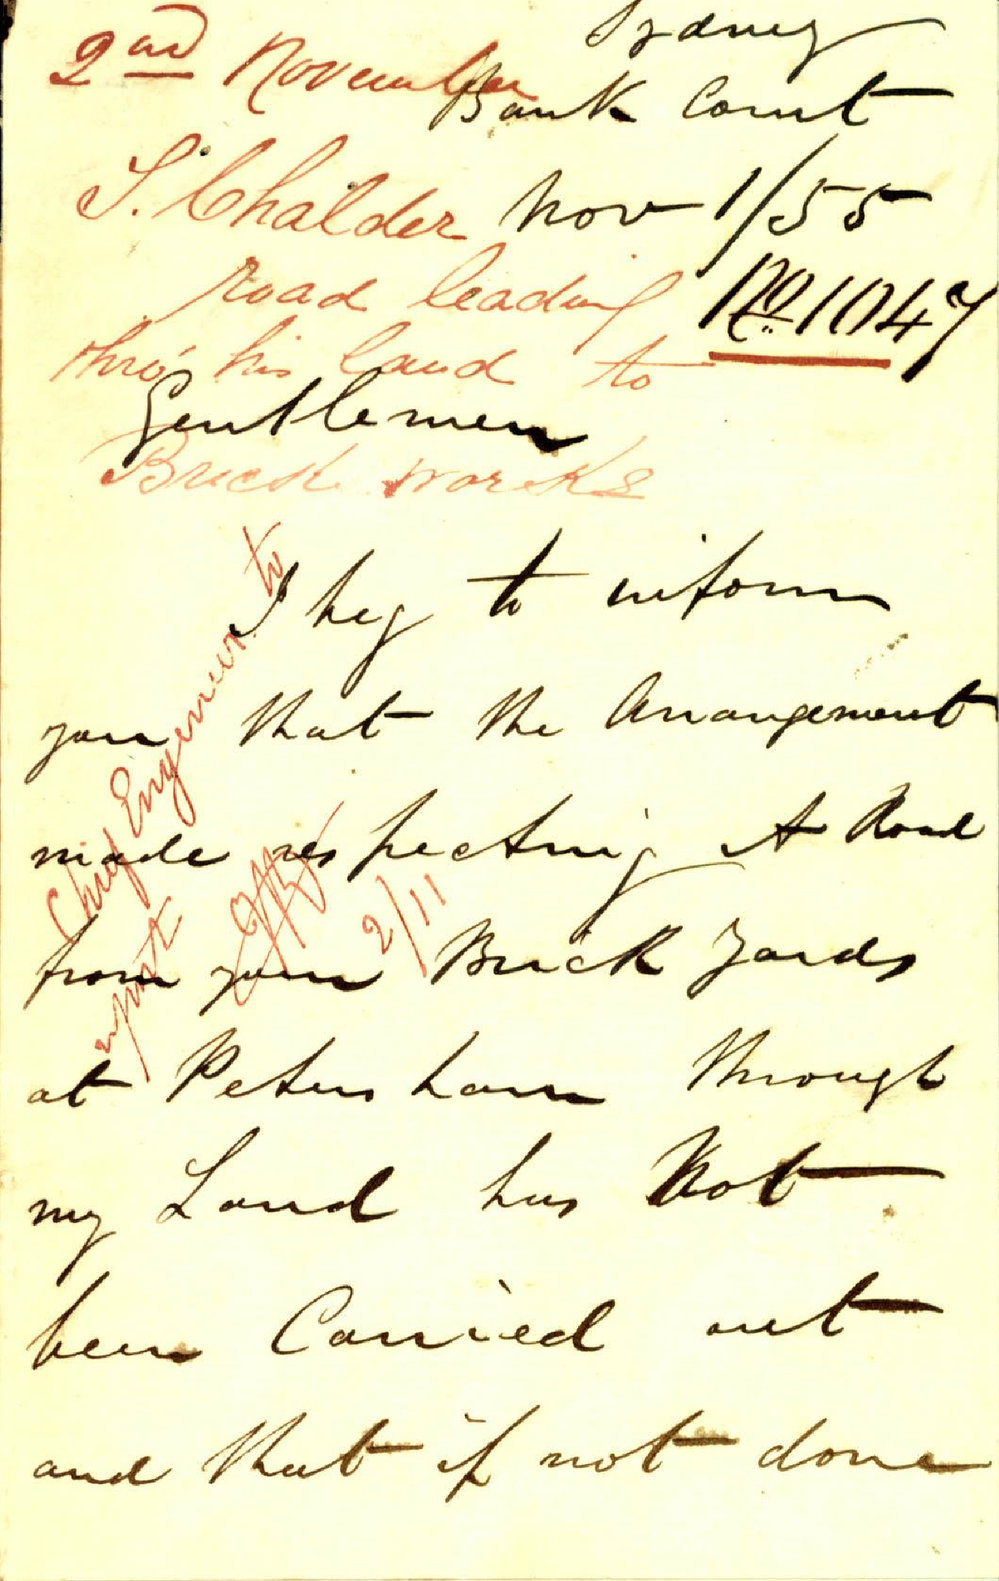 Sydney
2nd November
Bank Court
S. Chalder
Nov 1/55
road leading
No 1047
thro' his land to
Gentlemen
Brick works
I beg to inform
you that the Arrangement
made respecting A Road
from your Brick Yards
at Petersham through
my Land has Not
been Carried out
and that if not done
Chief Engineer to
report
2/11